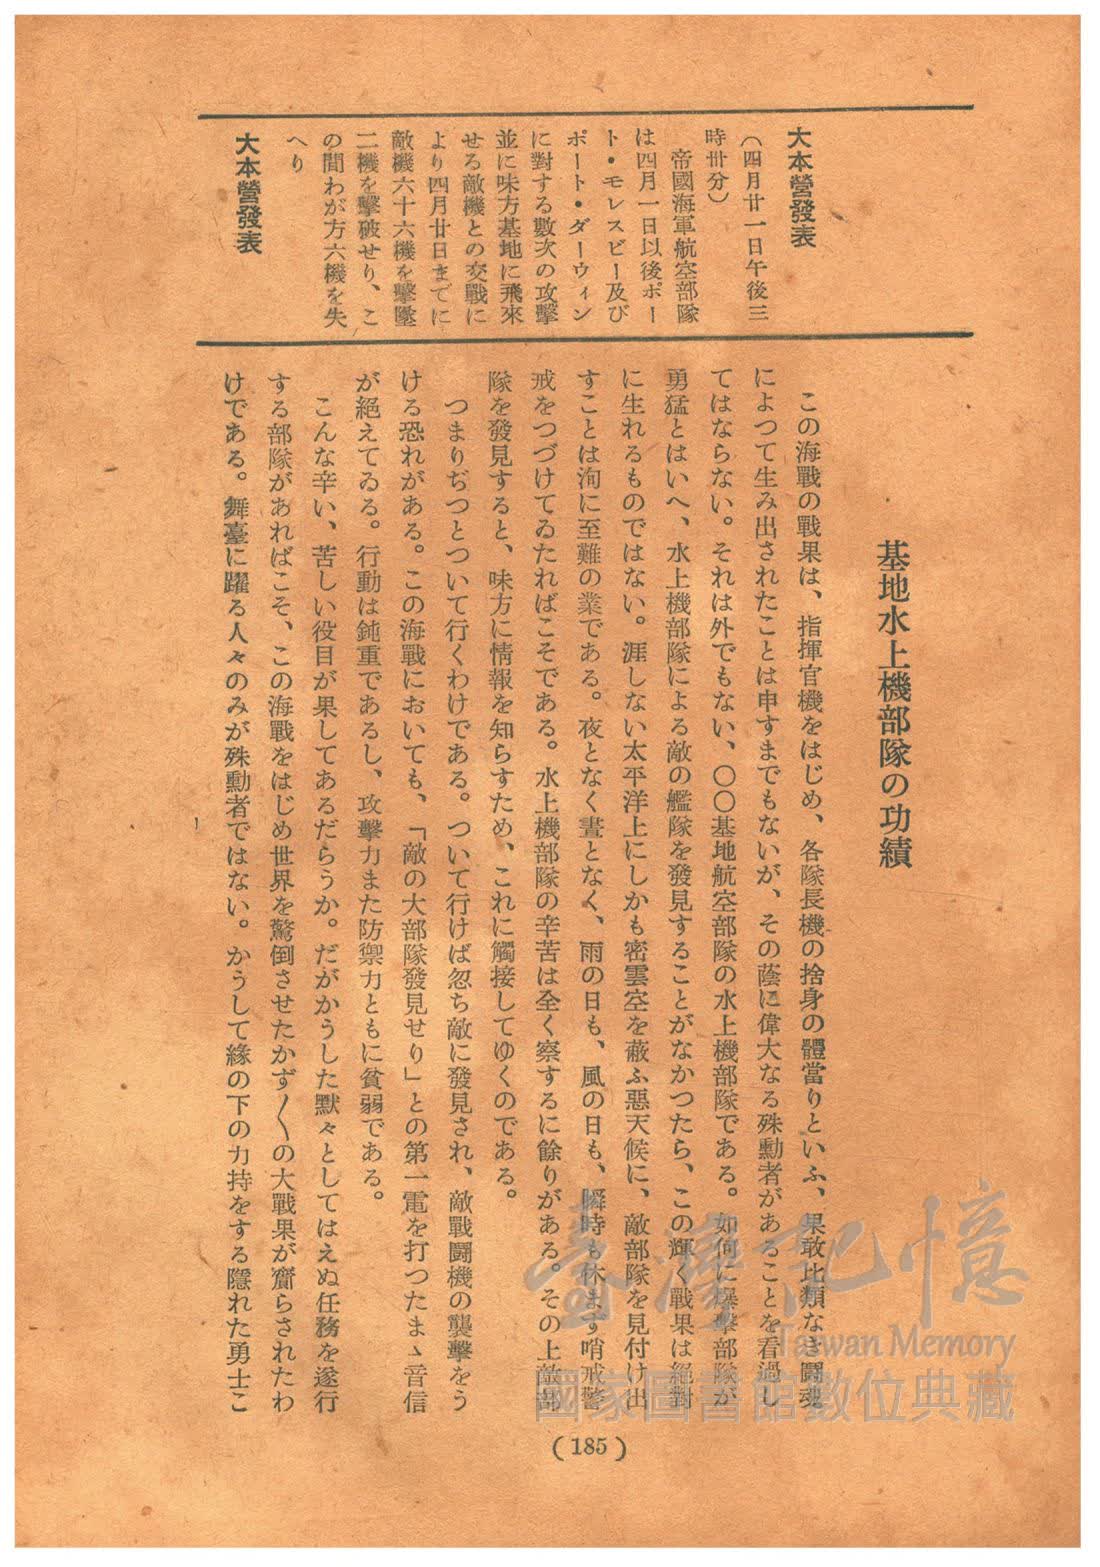 大本營發表
（四月廿一日午後三
時卅分）
帝國海軍航空部隊
は四月一日以後ポー
ト・モレスビー及び
ポート・ダーウィン
に對する數次の攻擊
並に味方基地に飛來
せる敵機との交戰に
より四月廿日までに
敵機六十六機を擊墜
二機を擊破せり、こ
の間わが方六機を失
へり
大本營發表
基地水上機部隊の功績
この海戰の戰果は、指揮官機をはじめ、各隊長機の捨身の體當りといふ、果敢比類なき鬪魂
によつて生み出されたことは申すまでもないが、その蔭に偉大なる殊勳者があることを看過し
てはならない。それは外でもない、〇〇基地航空部隊の水上機部隊である。如何に爆擊部隊が
勇猛とはいへ、水上機部隊による敵の艦隊を發見することがなかつたら、この輝く戰果は絕對
に生れるものではない。涯しない太平洋上にしかも密雲空を蔽ふ惡天候に、敵部隊を見付け出
すことは洵に至難の業である。夜となく晝となく、雨の日も、風の日も、瞬時も休まず哨戒警
戒をつづけてゐたればこそである。水上機部隊の辛苦は全く察するに餘りがある。その上敵部
隊を發見すると、味方に情報を知らすため、これに觸接してゆくのである。
つまりぢつとついて行くわけである。ついて行けば忽ち敵に發見され、敵戰鬪機の襲擊をう
ける恐れがある。この海戰においても、「敵の大部隊發見せり」との第一電を打つたまゝ音信
が絕えてゐる。行動は鈍重であるし、攻擊力また防禦力ともに貧弱である。
こんな辛い、苦しい役目が果してあるだらうか。だがかうした默々としてはえぬ任務を遂行
する部隊があればこそ、この海戰をはじめ世界を驚倒させたかず〱の大戰果が齎らされたわ
けである。舞臺に躍る人々のみが殊勳者ではない。かうして緣の下の力持をする隱れた勇士こ
(185)
臺灣記憶
Taiwan Memory
國家圖書館數位典藏